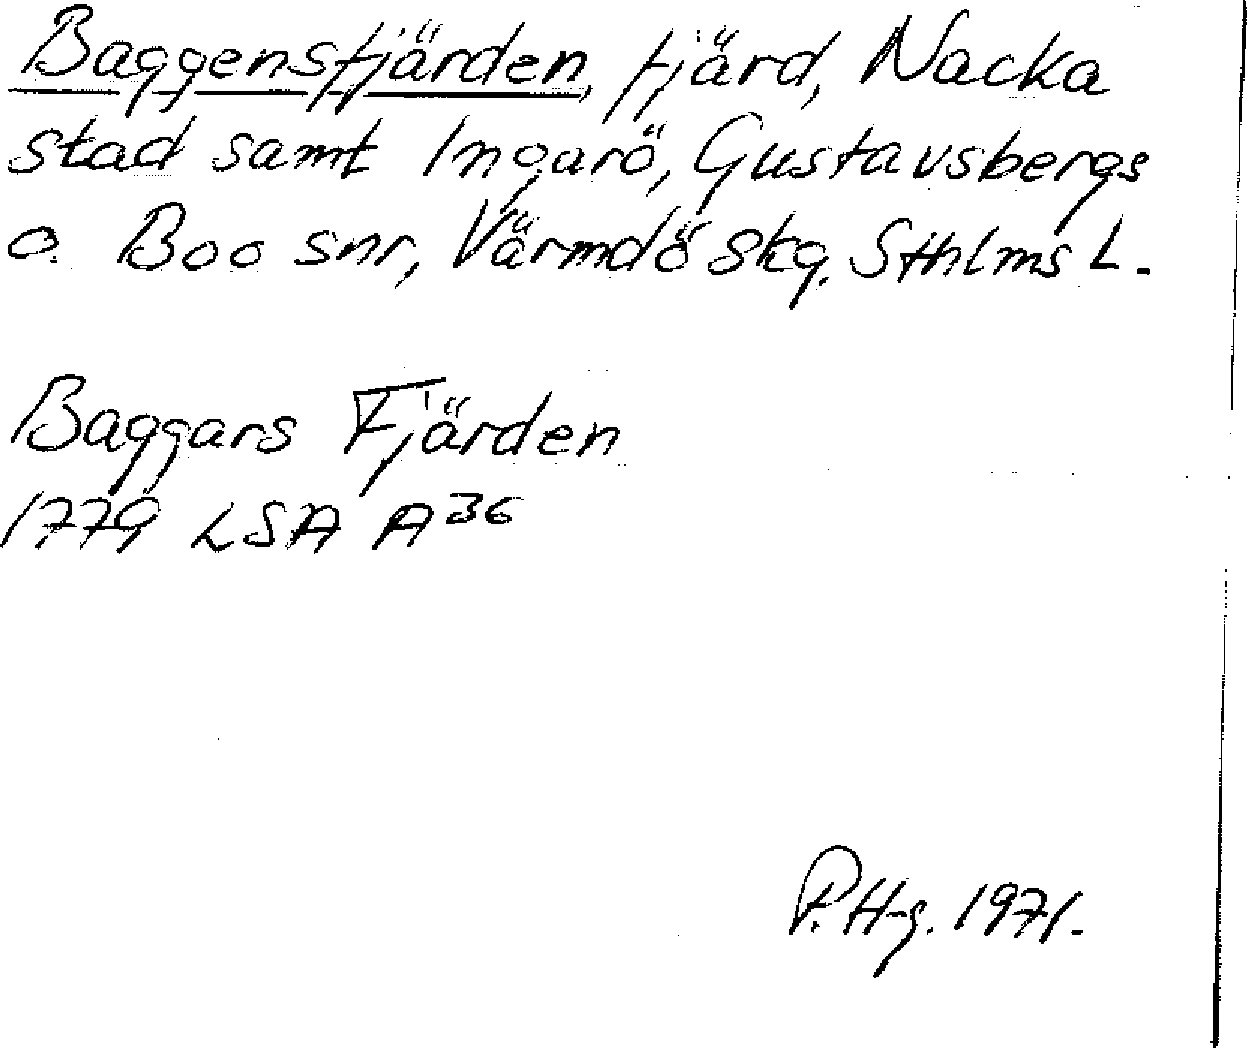 Baggensfjärden, fjärd, Nacka
stad samt Ingarö, Gustavsbergs
o. Boo snr, Värmdö skg. Sthlms L.
Baggars Fjärden
1779 LSA A36
P.H-g. 1971.